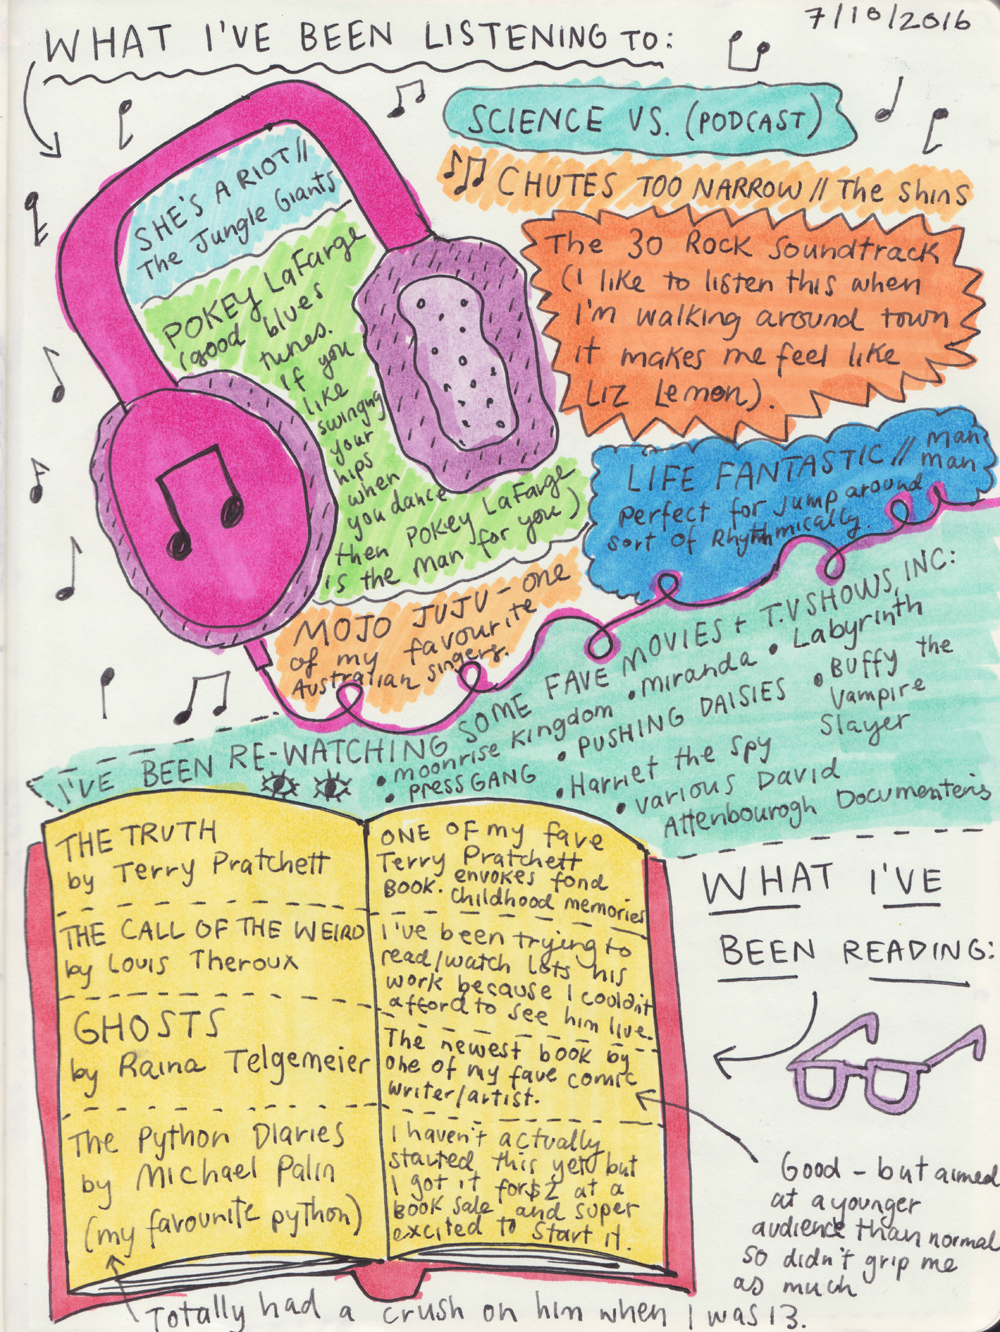 7/10/2016
WHAT I'VE BEEN LISTENING TO:
SCIENCE VS. (PODCAST)
CHUTES TOO NARROW // The Shins
The 30 Rock Soundtrack
(I like to listen this when
I'm walking around town
it makes me feel like
Liz Lemon).
SHE'S A RIOT //
The Jungle Giants
POKEY LaFarge
(good blues
tunes.
If you
like
swinging
your
hips
when
you dance
then POKEY LaFarge
is the man for you)
LIFE FANTASTIC // man
man
Perfect for jump around
sort of Rhythmically.
MOJO JUJU - one
of my favourite
Australian singers.
I'VE BEEN RE-WATCHING SOME FAVE MOVIES + T.V SHOWS, INC:
• moonrise kingdom • miranda • Labyrinth
• PRESS GANG • PUSHING DAISIES • Buffy the
Vampire
Slayer
• Harriet the Spy
• various David
Attenbourogh Documenteris
WHAT I'VE
BEEN READING:
THE TRUTH
by Terry Pratchett
ONE OF my fave
Terry Pratchett
BOOK. envokes fond
Childhood memories
THE CALL OF THE WEIRD
by Louis Theroux
I've been trying to
read/watch lots his
work because I couldn't
afford to see him live.
GHOSTS
by Raina Telgemeier
The newest book by
one of my fave comic
writer/artist.
The Python Diaries
by Michael Palin
(my favourite python)
I haven't actually
started this yet but
I got it for $2 at a
book sale and super
excited to start it.
Good - but aimed
at a younger
audience than normal
so didn't grip me
as much
Totally had a crush on him when I was 13.